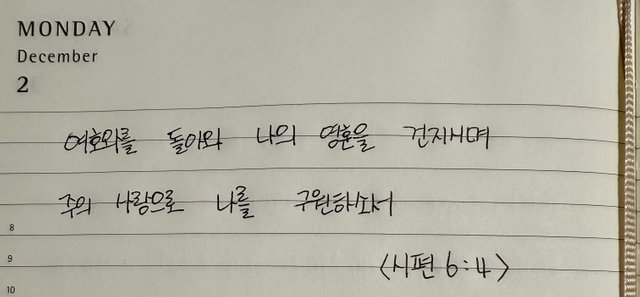 MONDAY
December
2
여호와를 돌아와 나의 영혼을 건지시며
주의 사랑으로 나를 구원하소서
8
9
<시편 6:4>
10